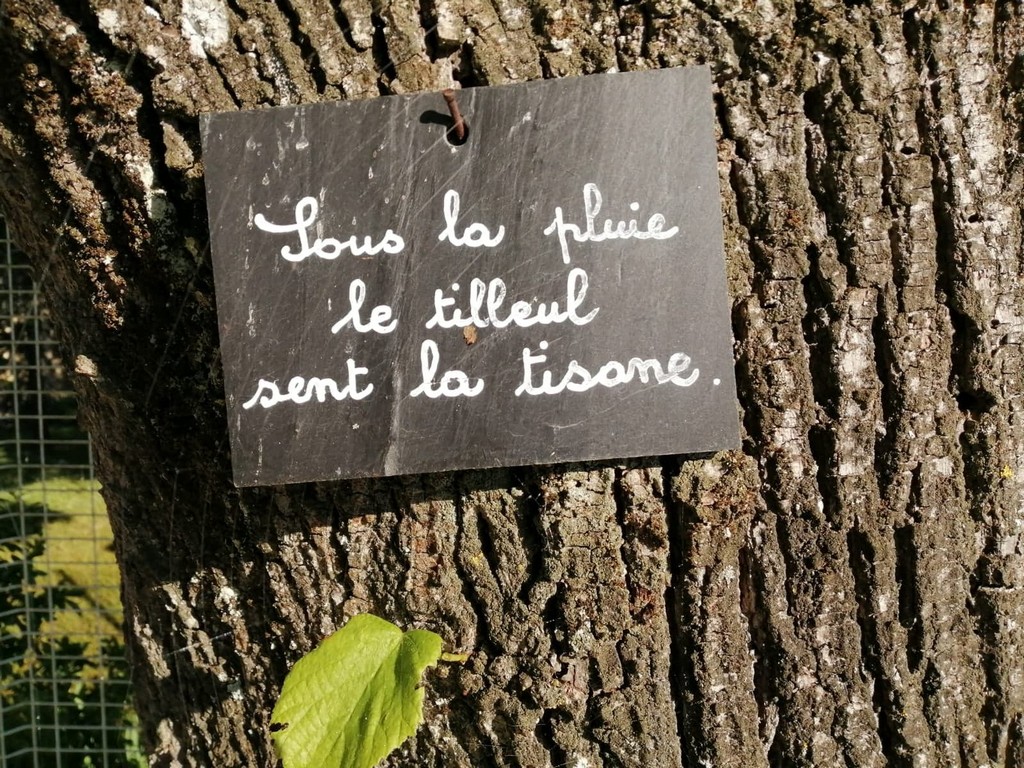 Sous la pluie
le tilleul
sent la tisane.